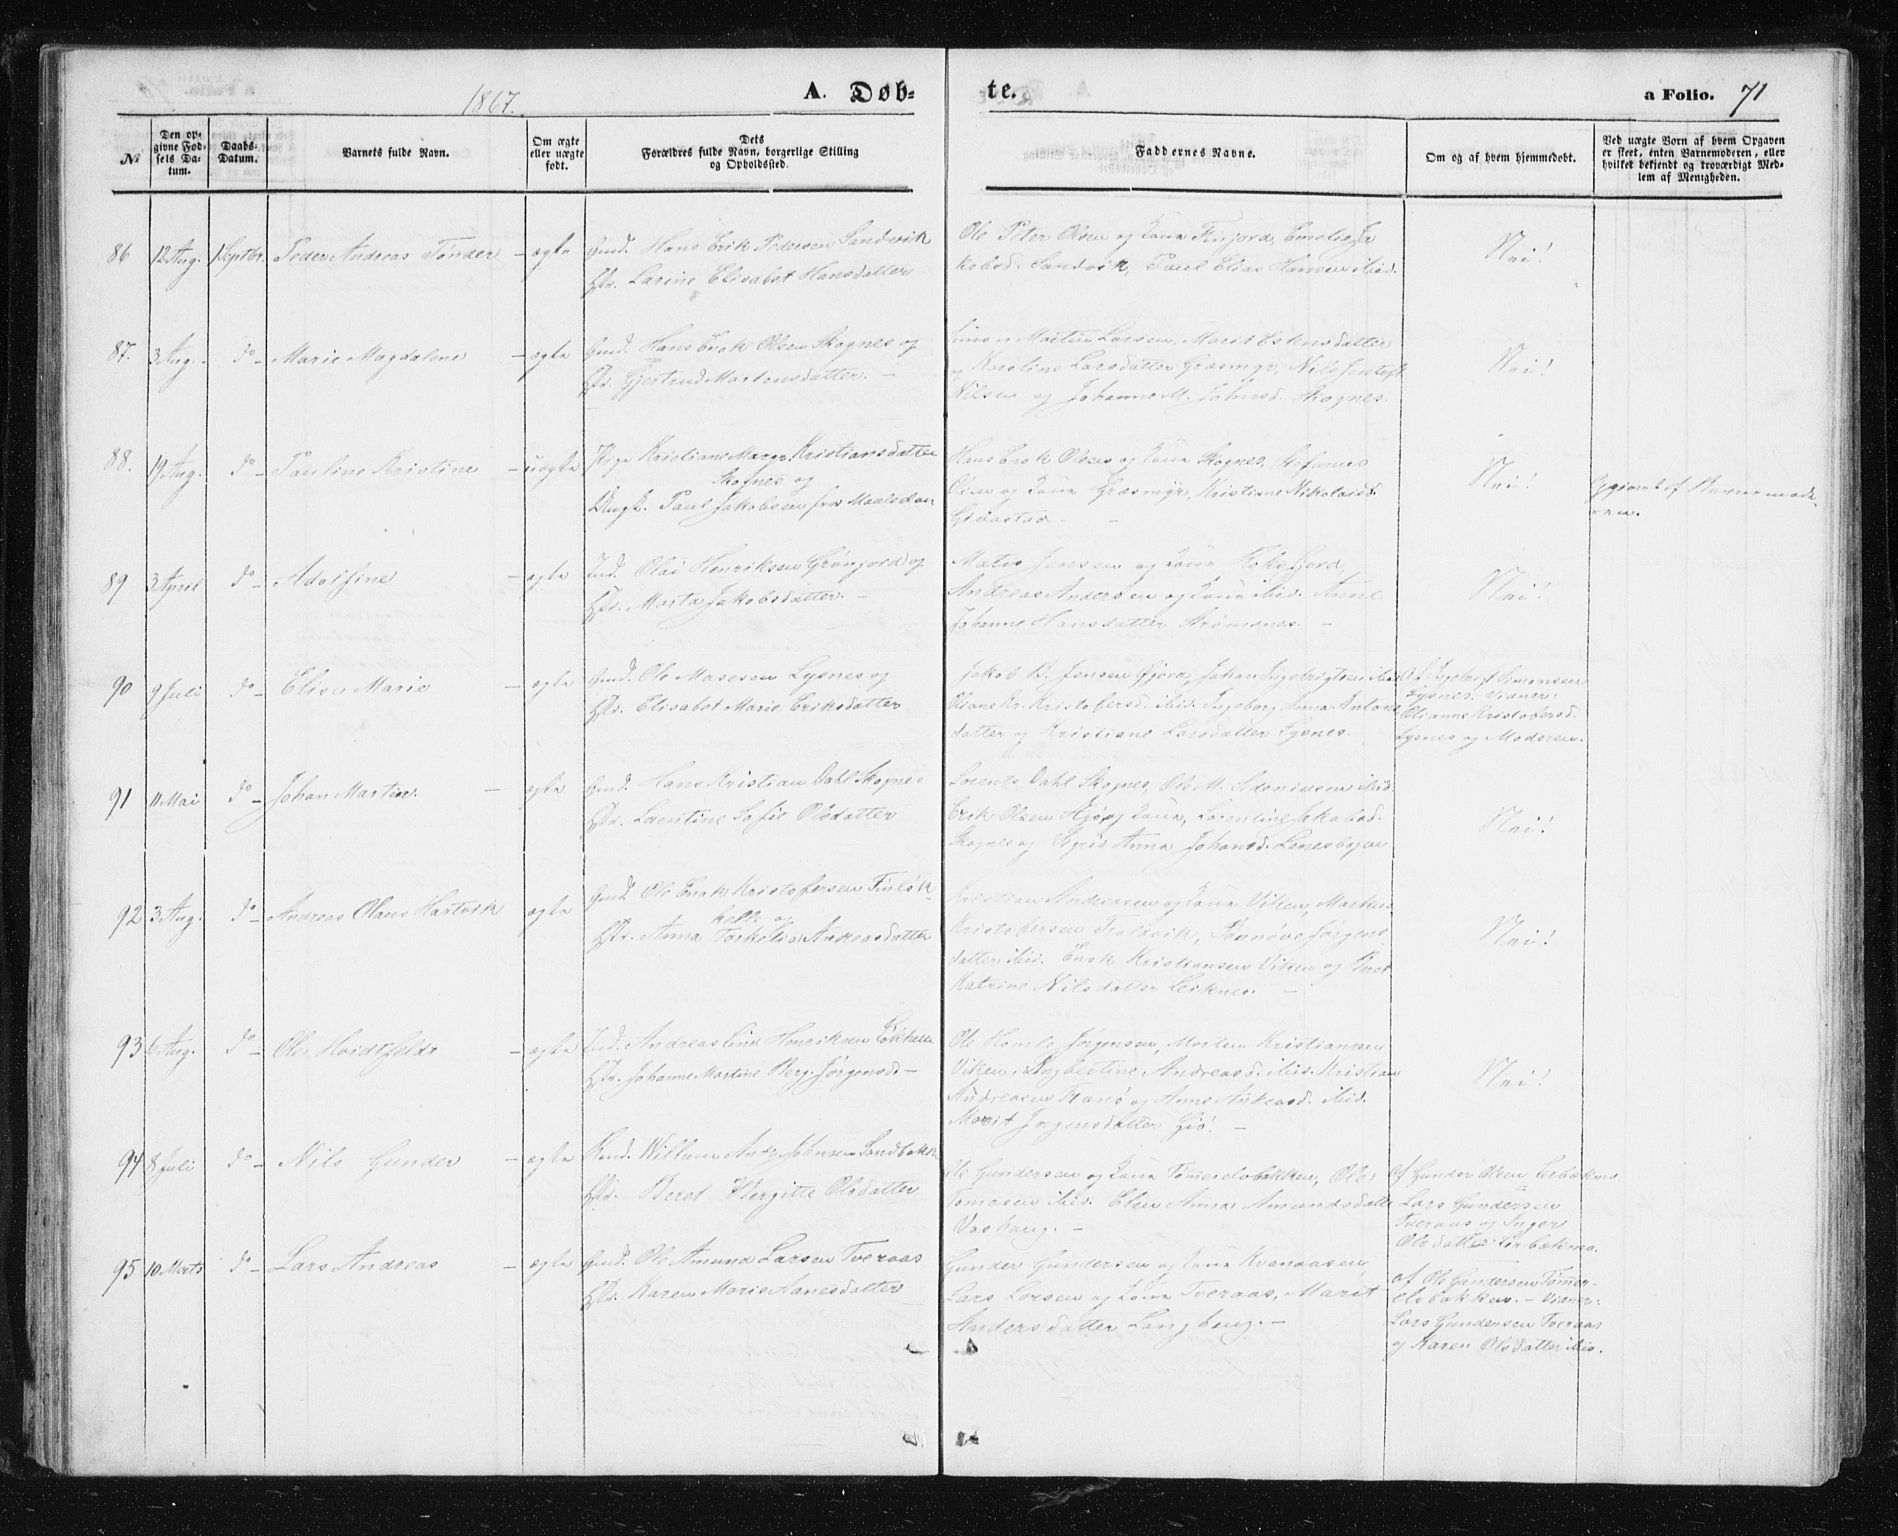 1867.
A. Døb-
te.
a Folio. 71
№
Den op-
givne Fød-
sels Da-
tum.
Daabs-
Datum.
Varnets fulde Navn.
Om ægte
eller uægte
født.
Dets
Forældres fulde Navn, borgerlige Stilling
og Opholdssted.
Faddernes Navne.
Om og af hvem hjemmedøbt.
Ved uægte Børn af hvem Opgaven
er skeet, enten Barnemoderen, eller
hvilket bekjendt og troværdigt Med-
lem af Menigheden.
86 12 Aug. 1 Septbr. Peder Andreas Tønder – ægte Gmd. Hans Erik Pedersen Sandvik
Hst. Larine Elisabet Hansdatter
Ole Peter Olsen og Kone Finjord, Emelie Ja
kobsd. Sandvik, Poul Elias Hansen ibid.
Nei!
87. 3 Aug. do – Marie Magdalene – ægte Gmd. Hans Enok Olsen Skognes og
Hst. Gjertrud Martensdatter. –
Simon Martin Larsen, Maret Estensdatter
og Karoline Larsdatter Græsmyr, Nils Jentoft
Nilsen og Johanne M. Johnsd. Skognes.
Nei!
88. 19 Aug. do – Pauline Kristine – uægte Pige Kristiane Margr. Kristiansdatter
Skognes og
Ungk. Paul Jakobsen fra Maalselven
Hans Enok Olsen og Kone Skognes, Stefanus
Olsen og Kone Græsmyr, Kristiane Nikolaisd.
Gibostad. –
Nei!
Opgivet af Barnemode
ren.
89 3 April do – Adolfine – ægte Ind. Olai Henriksen Grønjord og
Hst. Marta Jakobsdatter. –
Matis Jensen og Kone Fokefjord,
Andreas Andersen og Kone ibid. Anne
Johanne Hansdatter Strømsnes. –
Nei!
90 9 Juli do – Elise Marie – ægte Gmd. Ole Masesen Lysnes og
Hst. Elisabet Marie Eriksdatter
Jakob B. Jensen Gjøra, Johan Ingebrigtsen ibid
Oliane Kr. Kristofersd. ibid. Ingeborg Anna Antons
datter og Kristiane Larsdatter Lysnes.
Af Ingebrigt Simonsen
Lysnes, Vidner:
Olianne Kristofersd.
Lysnes og Moderen.
91 11 Mai do – Johan Martin. – ægte Gmd. Hans Kristian Dahl Skognes
Hst. Laentine Sofie Olsdatter
Lorents Dahl Skognes, Ole M. Adoniusen ibid.
Erik Olsen og Kone, Lorentine Jakobsd.
Skognes og Sigrid Anna Johansd.
Nei!
92 3 Aug. do – Andreas Olaus Hartvik – ægte Gmd. Ole Enok Kristofersen Finløk
helle og
Hst. Anna Torkelia Andreasdatter
Kristian Andreasen og Kone Viken, Markus
Kristofersen Troldvik, Jørgens
datter ibid. Enok Kristiansen Viken og Beret
Katrine Nilsdatter Leiknes. –
Nei!
93 6 Aug. do – Ole Hvidtfeldt – ægte Ind. Andreas Henriksen Løkhelle
Hst. Johanne Martine Berg. Jørgensd. –
Ole Jørgensen, Morten Kristiansen
Viken, Andreasd. ibid. Kristian
Andreasen Tranø og Anne Andreasd. ibid.
Marit Jørgensdatter Gisø. –
Nei!
94 8 Juli do – Nils Gunder – ægte Willum Andr. Jensen Sandbakk
Hst. Beret Bergitte Olsdatter
Ole Gundersen og Kone Tømerelvbakken, Ole
Tomasen ibid. Elen Anna Amundsdatter
Vashaug. –
Af Gunder Olsen
Lars Gundersen
Tveraas og Inger
Olsdatter
95 10 Marts do – Lars Andreas – ægte Gmd. Ole Amund Larsen Tveraas
Hst. Karen Marie Hansdatter
Gunder Gundersen og Kone Kvanaasen,
Lars Larsen og Kone Tveraas, Marit
Andersdatter Langhaug. –
af Ole Gundersen Tømer-
elvbakken. – Vidner:
Lars Gundersen Tveraas
og Karen Olsdatter ibid.